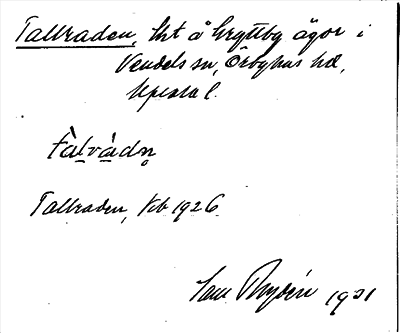 Tallraden, lht å Gryttby ägor i
Vendels sn, Örbyhus hd,
Upsala l.
Tallraden, kb 1926
Sam Rydén 1931